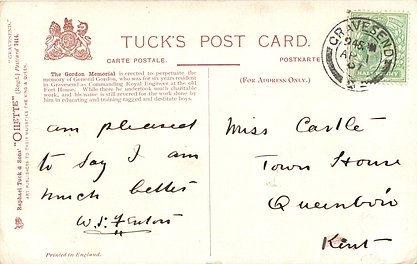 "GRAVESEND."
Raphael Tuck & Sons' "OILETTE" [Regd.] Postcard
ART PUBLISHERS TO THEIR MAJESTIES THE KING & QUEEN.
TUCK'S POST CARD.
CARTE POSTALE.
POSTKARTE
(FOR ADDRESS ONLY.)
The Gordon Memorial is erected to perpetuate the
memory of General Gordon, who was for six years resident
in Gravesend as Commanding Royal Engineer at the old
Fort House. While there he undertook much charitable
work, and his name is still revered for the work done by
him in educating and training ragged and destitute boys.
GRAVESEND
am pleased
to say I am
much better
W.S. Fenton
Miss Castle
Town House
Queenboro
Kent
Printed in England.